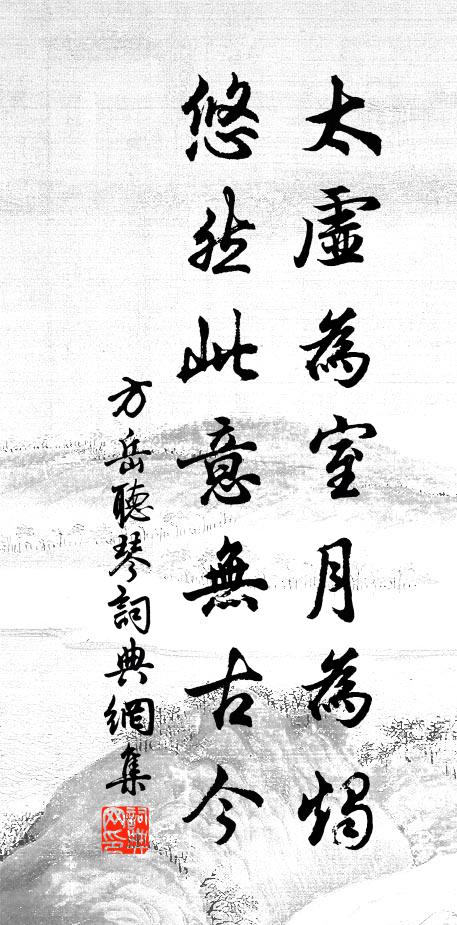 太虛為室月為燭
悠然此意無古今
方岳聽琴詞典網集